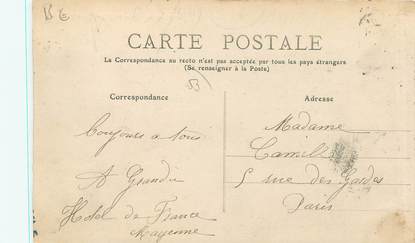 CARTE POSTALE
La Correspondance au recto n'est pas acceptée par tous les pays étrangers
(Se renseigner à la Poste)
Correspondance
Adresse
Toujours a vous
A Grandin
Hotel de France
Mayenne
Madame
Camille
5 rue des Gardes
Paris